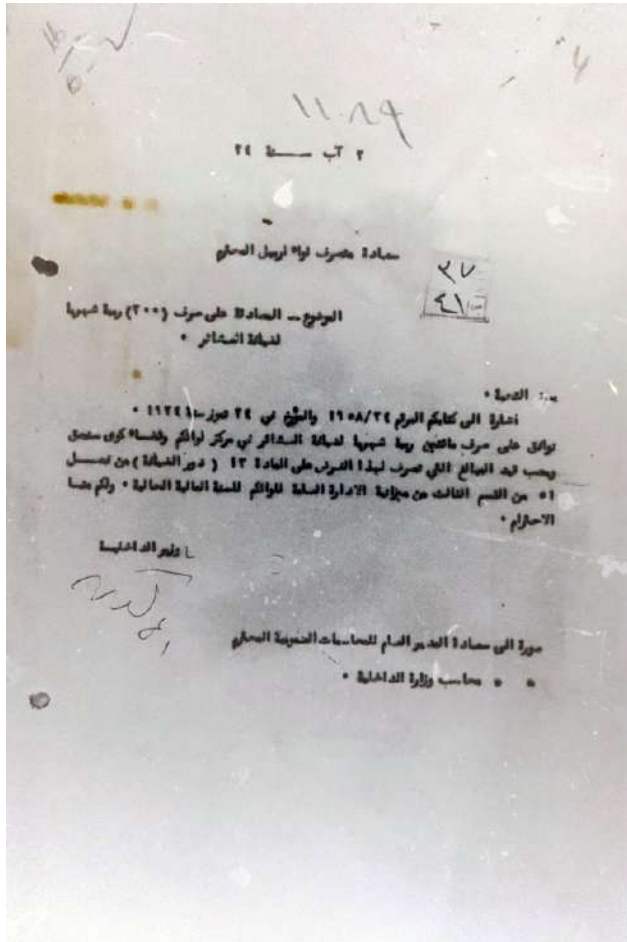 ١١٠٨٩
٢ آب سنة ٢٤
سعادة متصرف لواء اربيل المحترم
٣٧
٤١
الموضوع - المصادقة على صرف (٢٠٠) ربية شهريا
لضيافة العشائر ٠
بعد التحية ٠
اشارة الى كتابكم المرقم ١٦٥٨/٢٤ والمؤرخ في ٢٤ تموز سنة ١٩٢٤ ٠
نوافق على صرف مائتين ربية شهريا لضيافة العشائر في مركز لوائكم وقضاء كوى سنجق
ويجب قيد المبالغ التي تصرف لهذا الغرض على المادة ١٣ ( دور الضيافة ) من فصل
١٥ من القسم الثالث من ميزانية الادارة العامة للوائكم للسنة المالية الحالية ٠ ولكم منا
الاحترام ٠
وزير الداخلية
صورة الى سعادة المدير العام للمحاسبات العمومية المحترم
" " محاسب وزارة الداخلية ٠